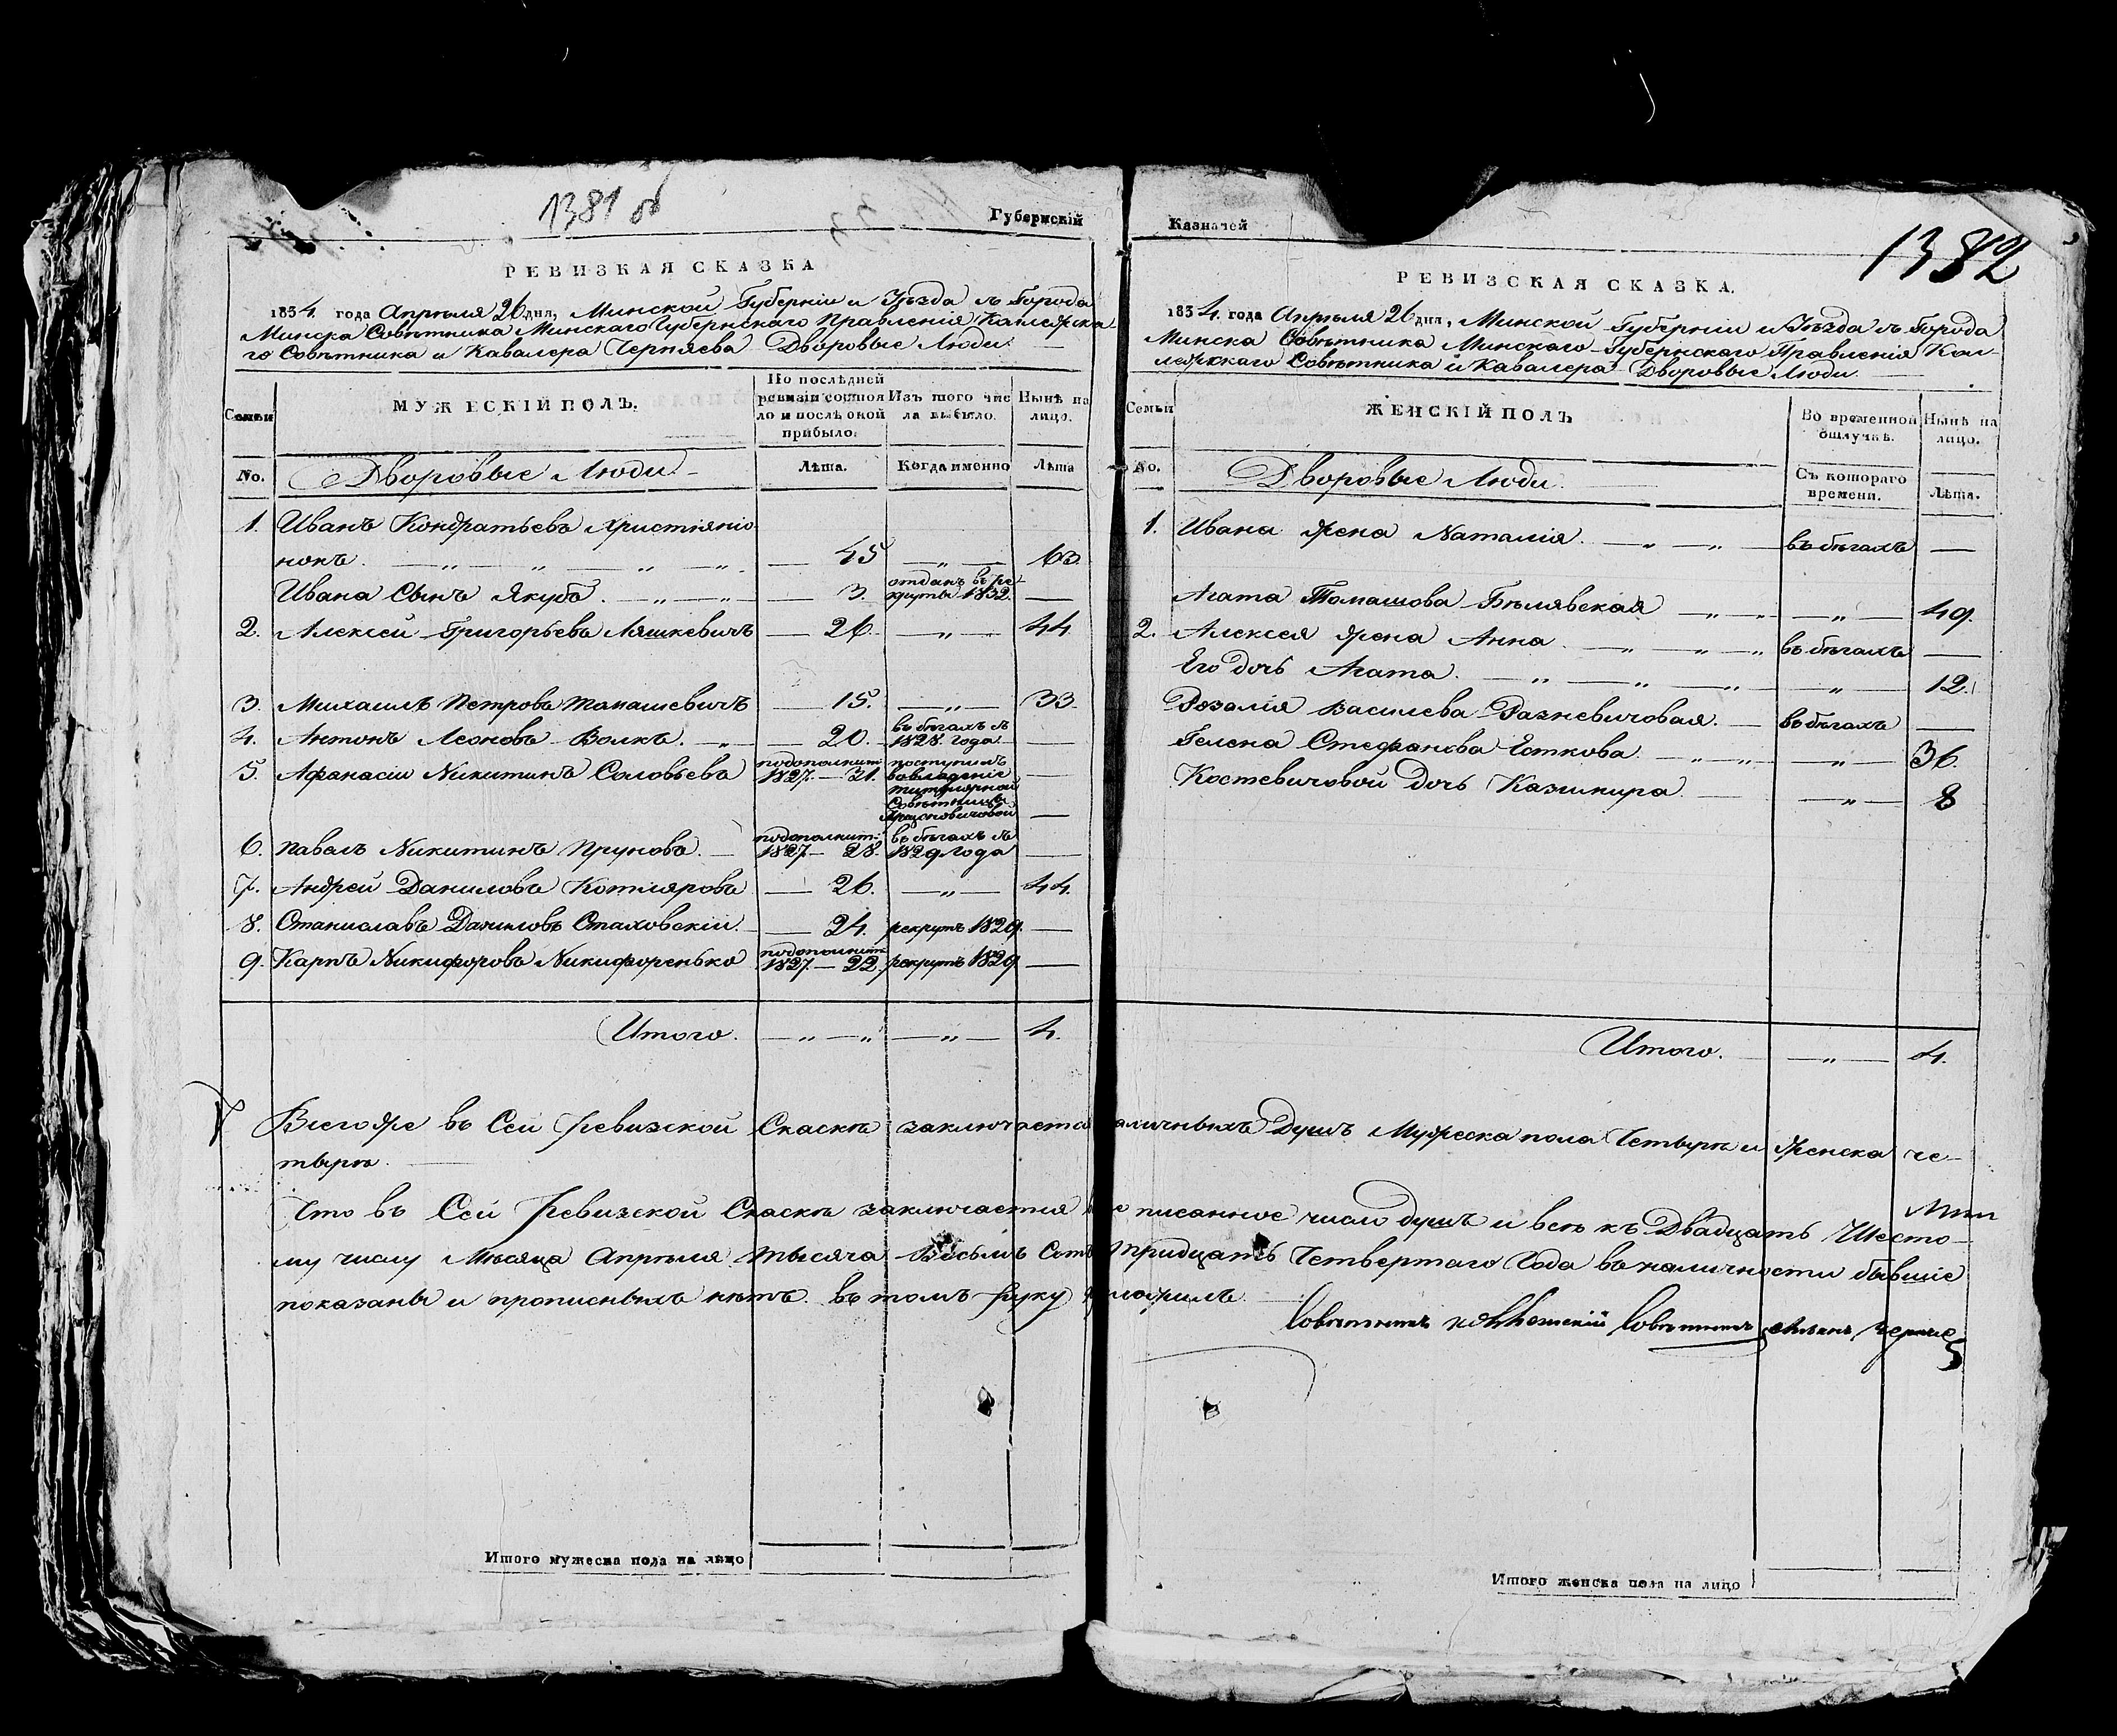 1381 об
Губернскій Казначей
1382
РЕВИЗКАЯ СКАЗКА
1834 года Апрѣля 26 дня, Минской Губерніи и Уѣзда въ Города
Минска Совѣтника Минскаго Губернскаго Правленія Колежска-
го Совѣтника и Кавалера Черняева Дворовые Люди.
Семьи
МУЖЕСКІЙ ПОЛЪ.
По послѣдней ревизіи состояло и послѣ оной прибыло.
Изъ того числа выбыло.
Нынѣ на лицо.
No.
Дворовые Люди
Лѣта.
Когда именно
Лѣта
1. Иванъ Кондратьевъ Христіяніо
нокъ. 45 — 63.
Ивана Сынъ Якубъ. 3. отданъ въ рекруты 1832.
2. Алексей Григорьевъ Ляшкевичъ 26. — 44
3. Михаилъ Петровъ Томашевичъ 15. — 33
4. Антонъ Леоновъ Волкъ. 20. въ бѣгахъ съ 1828. года —
5. Афанасій Никитинъ Соловьевъ подополнит: 1827. — 21. поступилъ во владеніе титулярной Совѣтницы —
6. Павелъ Никитинъ Пруновъ. подополнит: 1827. — 28. въ бѣгахъ съ 1829 года —
7. Андрей Даниловъ Котляровъ 26. — 44.
8. Станиславъ Даниловъ Стаховскій. 24. рекрутъ 1829. —
9. Карпъ Никифоровъ Никифоренько подополнит: 1827. — 22. рекрутъ 1829 —
Итого. 4.
РЕВИЗСКАЯ СКАЗКА.
1834. года Апрѣля 26 дня, Минской Губерніи и Уѣзда въ Города
Минска Совѣтника Минскаго Губернскаго Правленія Кол-
лежскаго Совѣтника и Кавалера Дворовые Люди.
Семьи
ЖЕНСКІЙ ПОЛЪ
Во временной отлучкѣ.
Нынѣ на лицо.
No.
Дворовые Люди.
Съ котораго времени.
Лѣта.
1. Ивана жена Наталія. въ бѣгахъ —
Агата Томашова Бѣлявская — 49.
2. Алексея жена Анна въ бѣгахъ —
Его дочь Агата. — 12.
Розалія Василева Разневичовая. въ бѣгахъ —
Гелена Стефанова Еткова. — 36.
Костевичовой дочь Казимира — 8
Итого. 4.
Всего же въ Сей Ревизской Скаскѣ заключается наличныхъ Душъ Мужеска пола Четыри и Женска че-
тыри.
Что въ Сей Ревизской Скаскѣ заключается писанное число душъ и всѣ къ Двадцать Шесто-
му числу Мѣсяца Апрѣля тысяча Восьмъ Сотъ тридцать Четвертаго Года въ наличности бывшіе
показаны и прописныхъ нѣтъ. въ томъ руку приложилъ.
Совѣтникъ Совѣтникъ
Итого мужеска пола на лицо
Итого женска пола на лицо